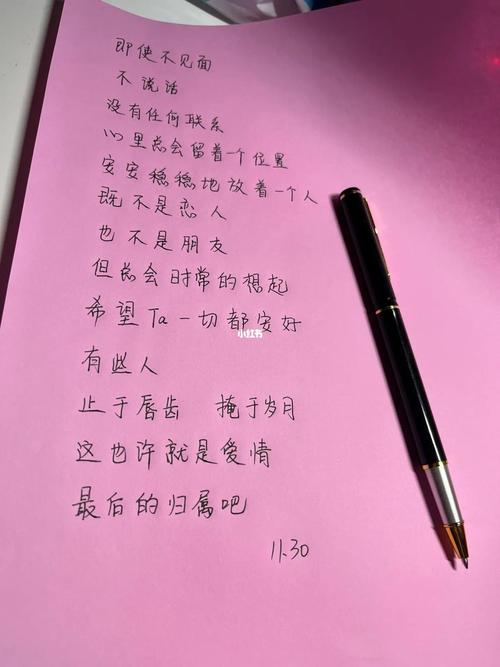 即使不见面
不说话
没有任何联系
心里总会留着一个位置
安安稳稳地放着一个人
既不是恋人
也不是朋友
但总会时常的想起
希望Ta一切都安好
小红书
有些人
止于唇齿 掩于岁月
这也许就是爱情
最后的归属吧
11.30